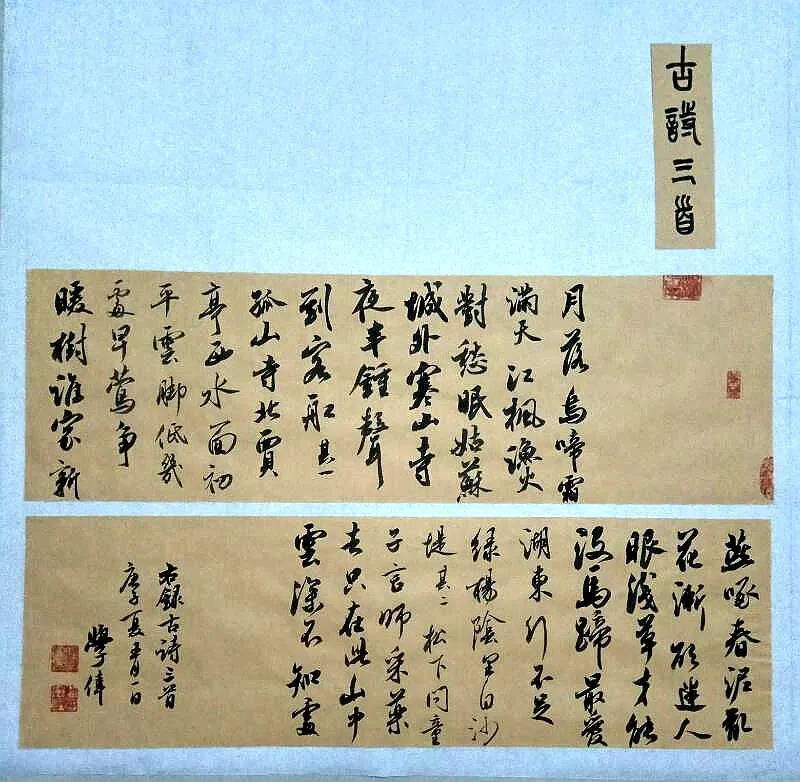 古詩三首
月落烏啼霜
滿天江楓漁火
對愁眠姑蘇
城外寒山寺
夜半鍾聲
到客船其一
孤山寺北賈
亭西水面初
平雲腳低幾
處早鶯爭
暖樹誰家新
燕啄春泥亂
花漸欲迷人
眼淺草才能
沒馬蹄最愛
湖東行不足
綠楊陰里白沙
堤其二松下問童
子言師采藥
去只在此山中
雲深不知處
右錄古詩三首
庚子夏五月一日
學偉